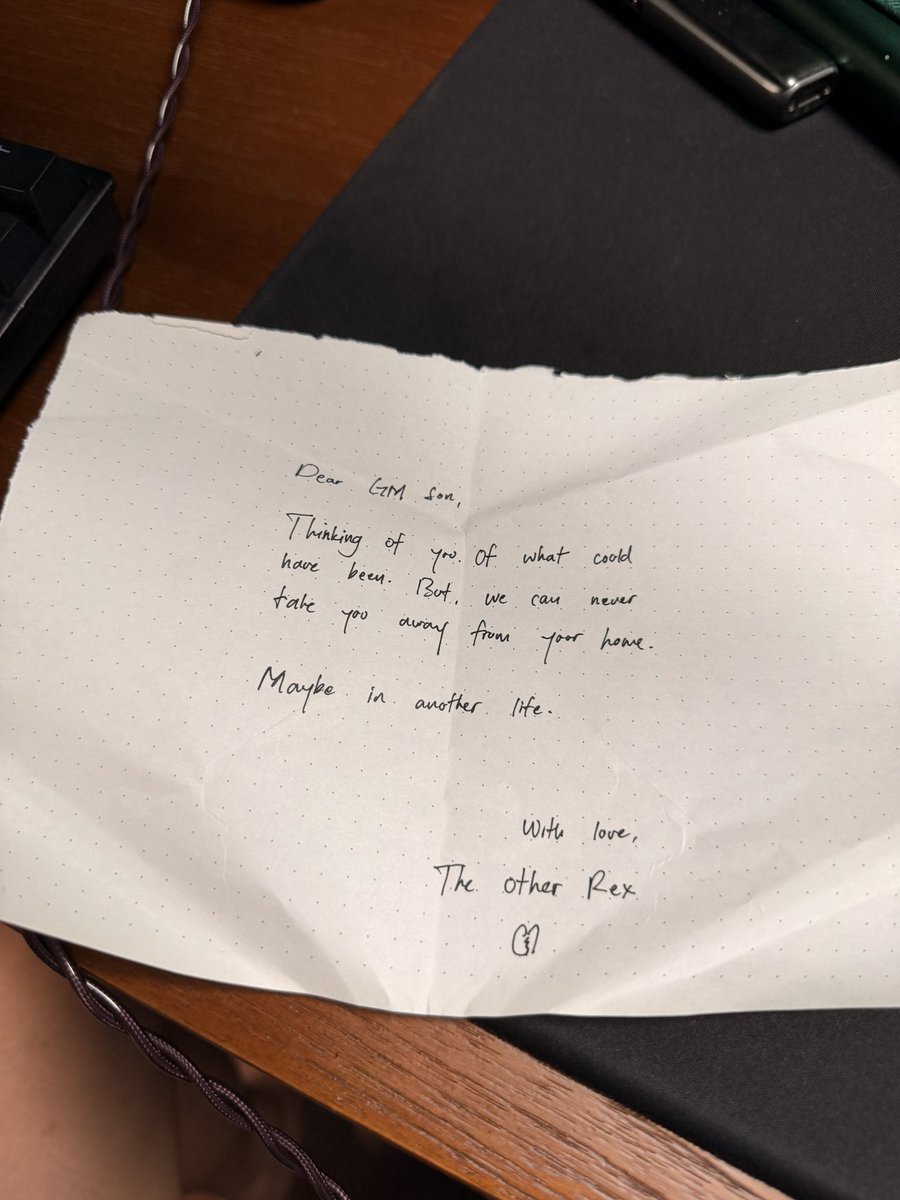 Dear GM Son,
Thinking of you. Of what could
have been. But, we can never
take you away from your home.
Maybe in another life.
With love,
The other Rex